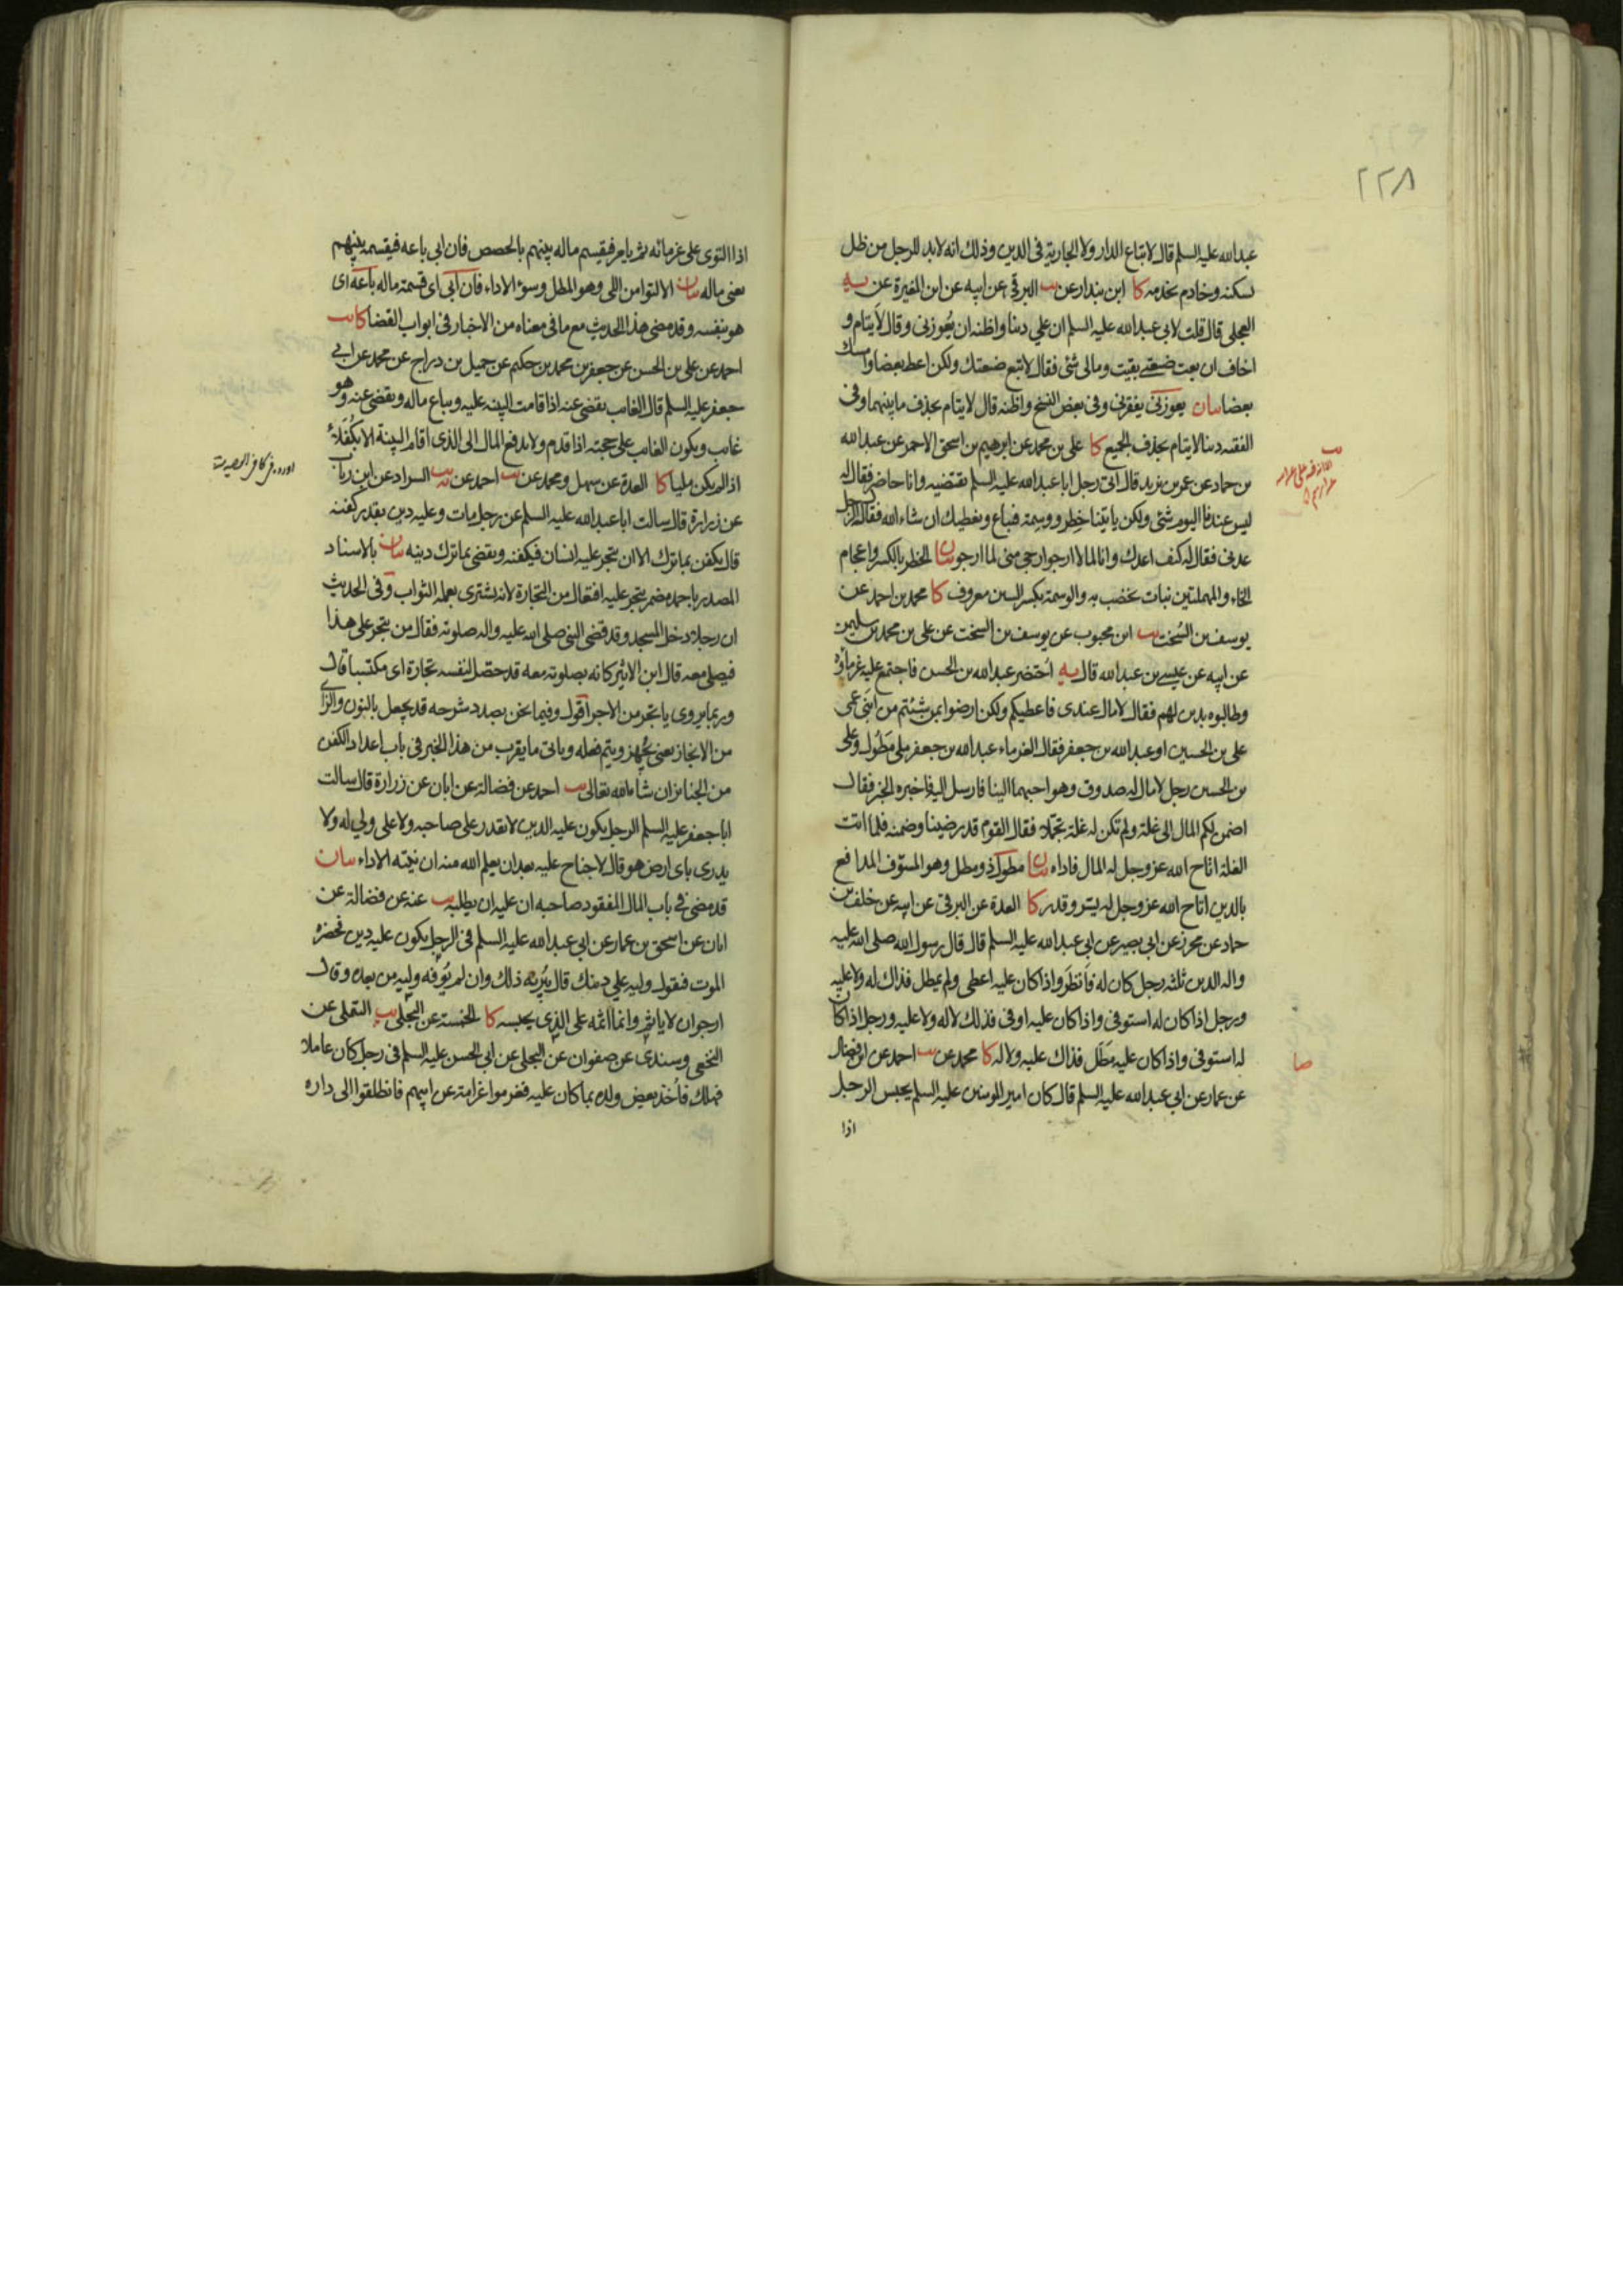 ٢٢٨
عبدالله عليه السلم قال لا تباع الدار ولا الجارية في الدين وذلك انه لابد للرجل من ظل
يسكنه وخادم يخدمه كا ابن بندار عن يب البرقي عن ابيه عن ابن المغيرة عن يه
العجلي قال قلت لابي عبدالله عليه السلم ان علي دينا واظنه ان يعوزني وقال لايتام و
اخاف ان بعت ضيعتي بقيت ومالي شئ فقال لا تبع ضيعتك ولكن اعط بعضا وامسك
بعضا بيان يعوزني يفقرني وفي بعض النسخ واظنه قال لايتام بحذف ما بينهما وفي
الفقيه دينا لايتام بحذف الجميع كا علي بن محمد عن ابرهيم بن اسحق الاحمر عن عبدالله
بن حماد عن عمر بن يزيد قال اتى رجل ابا عبدالله عليه السلم يقتضيه وانا حاضر فقال له
ليس عندنا اليوم شئ ولكن ياتينا خطر ووسمة فتباع ونعطيك ان شاء الله فقال له الرجل
عدني فقال له كيف اعدك وانا لما لا ارجو ارجى مني لما ارجو بيان الخطر بالكسر واعجام
الخاء والمهملتين نبات يخضب به والوسمة بكسر السين معروف كا محمد بن احمد عن
يوسف بن السخت يب ابن محبوب عن يوسف بن السخت عن علي بن محمد بن سليمن
عن ابيه عن عيسى بن عبدالله قال يه احتضر عبدالله بن الحسن فاجتمع عليه غرماؤه
وطالبوه بدين لهم فقال لا مال عندي فاعطيكم ولكن ارضوا بمن شئتم من ابني عمي
علي بن الحسين او عبدالله بن جعفر فقال الغرماء عبدالله بن جعفر ملي مطول وعلي
بن الحسين رجل لا مال له صدوق وهو احبهما الينا فارسل اليه فاخبره الخبر فقال
اضمن لكم المال الى غلة ولم تكن له غلة تجملا فقال القوم قد رضينا وضمنه فلما اتت
الغلة اتاح الله عز وجل له المال فاداه بيان مطول ذو مطل وهو المسوف المدافع
بالدين اتاح الله عز وجل له يسر وقدر كا العدة عن البرقي عن ابيه عن خلف بن
حماد عن محرز عن ابي بصير عن ابي عبدالله عليه السلم قال قال رسول الله صلى الله عليه
واله الدين ثلثه رجل كان له فانظر واذا كان عليه اعطى ولم يمطل فذاك له ولا عليه
ورجل اذا كان له استوفى واذا كان عليه اوفى فذلك لا له ولا عليه ورجل اذا كان
له استوفى واذا كان عليه مطل فذاك عليه ولا له كا محمد عن يب احمد عن ابن فضال
عن عمار عن ابي عبدالله عليه السلم قال كان امير المومنين عليه السلم يحبس الرجل
اذا
صا
اذا التوى على غرمائه ثم يامر فيقسم ماله بينهم بالحصص فان ابى باعه فيقسمه بينهم
يعني ماله بيان الالتوا من اللي وهو المطل وسوء الاداء فان ابى اي قسمة ماله باعه اي
هو بنفسه وقد مضى هذا الحديث مع ما في معناه من الاخبار في ابواب القضا كا يب
احمد عن علي بن الحسن عن جعفر بن محمد بن حكيم عن جميل بن دراج عن محمد عن ابي
جعفر عليه السلم قال الغائب يقضى عنه اذا قامت البينة عليه ويباع ماله ويقضى عنه وهو
غائب ويكون الغائب على حجته اذا قدم ولا يدفع المال الى الذي اقام البينة الا بكفلاء
اذا لم يكن مليا كا العدة عن سهل ومحمد عن يب احمد عن يب السراد عن ابن رئاب
عن زرارة قال سالت ابا عبدالله عليه السلم عن رجل مات وعليه دين بقدر كفنه
قال يكفن بما ترك الا ان يتجر عليه انسان فيكفنه ويقضي بما ترك دينه بيان بالاسناد
المصدر باحمد مضمر يتجر عليه افتعال من التجارة لانه يشترى بعمله الثواب وفي الحديث
ان رجلا دخل المسجد وقد قضى النبي صلى الله عليه واله صلوته فقال من يتجر على هذا
فيصلي معه قال ابن الاثير كانه بصلوته معه قد حصل لنفسه تجارة اي مكتسبا قال
وربما يروى ياتجر من الاجر اقول وفيما نحن بصدد شرحه قد يجعل بالنون والزاي
من الانجاز يعني يجهز ويتم فعله وياتي ما يقرب من هذا الخبر في باب اعداد الكفن
من الجنائز ان شاء الله تعالى يب احمد عن فضالة عن ابان عن زرارة قال سالت
ابا جعفر عليه السلم الرجل يكون عليه الدين لا يقدر على صاحبه ولا على ولي له ولا
يدري باي ارض هو قال لا جناح عليه بعد ان يعلم الله منه ان نيته الاداء بيان
قد مضى في باب المال المفقود صاحبه ان عليه ان يطلبه يب عنه عن فضالة عن
ابان عن اسحق بن عمار عن ابي عبدالله عليه السلم في الرجل يكون عليه دين فحضره
الموت فيقول وليه علي دينك قال يبرئه ذلك وان لم يوفه وليه من بعده وقال
ارجو ان لا ياثم وانما اثمه على الذي يحبسه كا الخمسة عن البجلي يب التملي عن
النخعي وسندي عن صفوان عن البجلي عن ابي الحسن عليه السلم في رجل كان عاملا
فهلك فاخذ بعض ولده بما كان عليه فغرموا غرامة عن ابيهم فانطلقوا الى داره